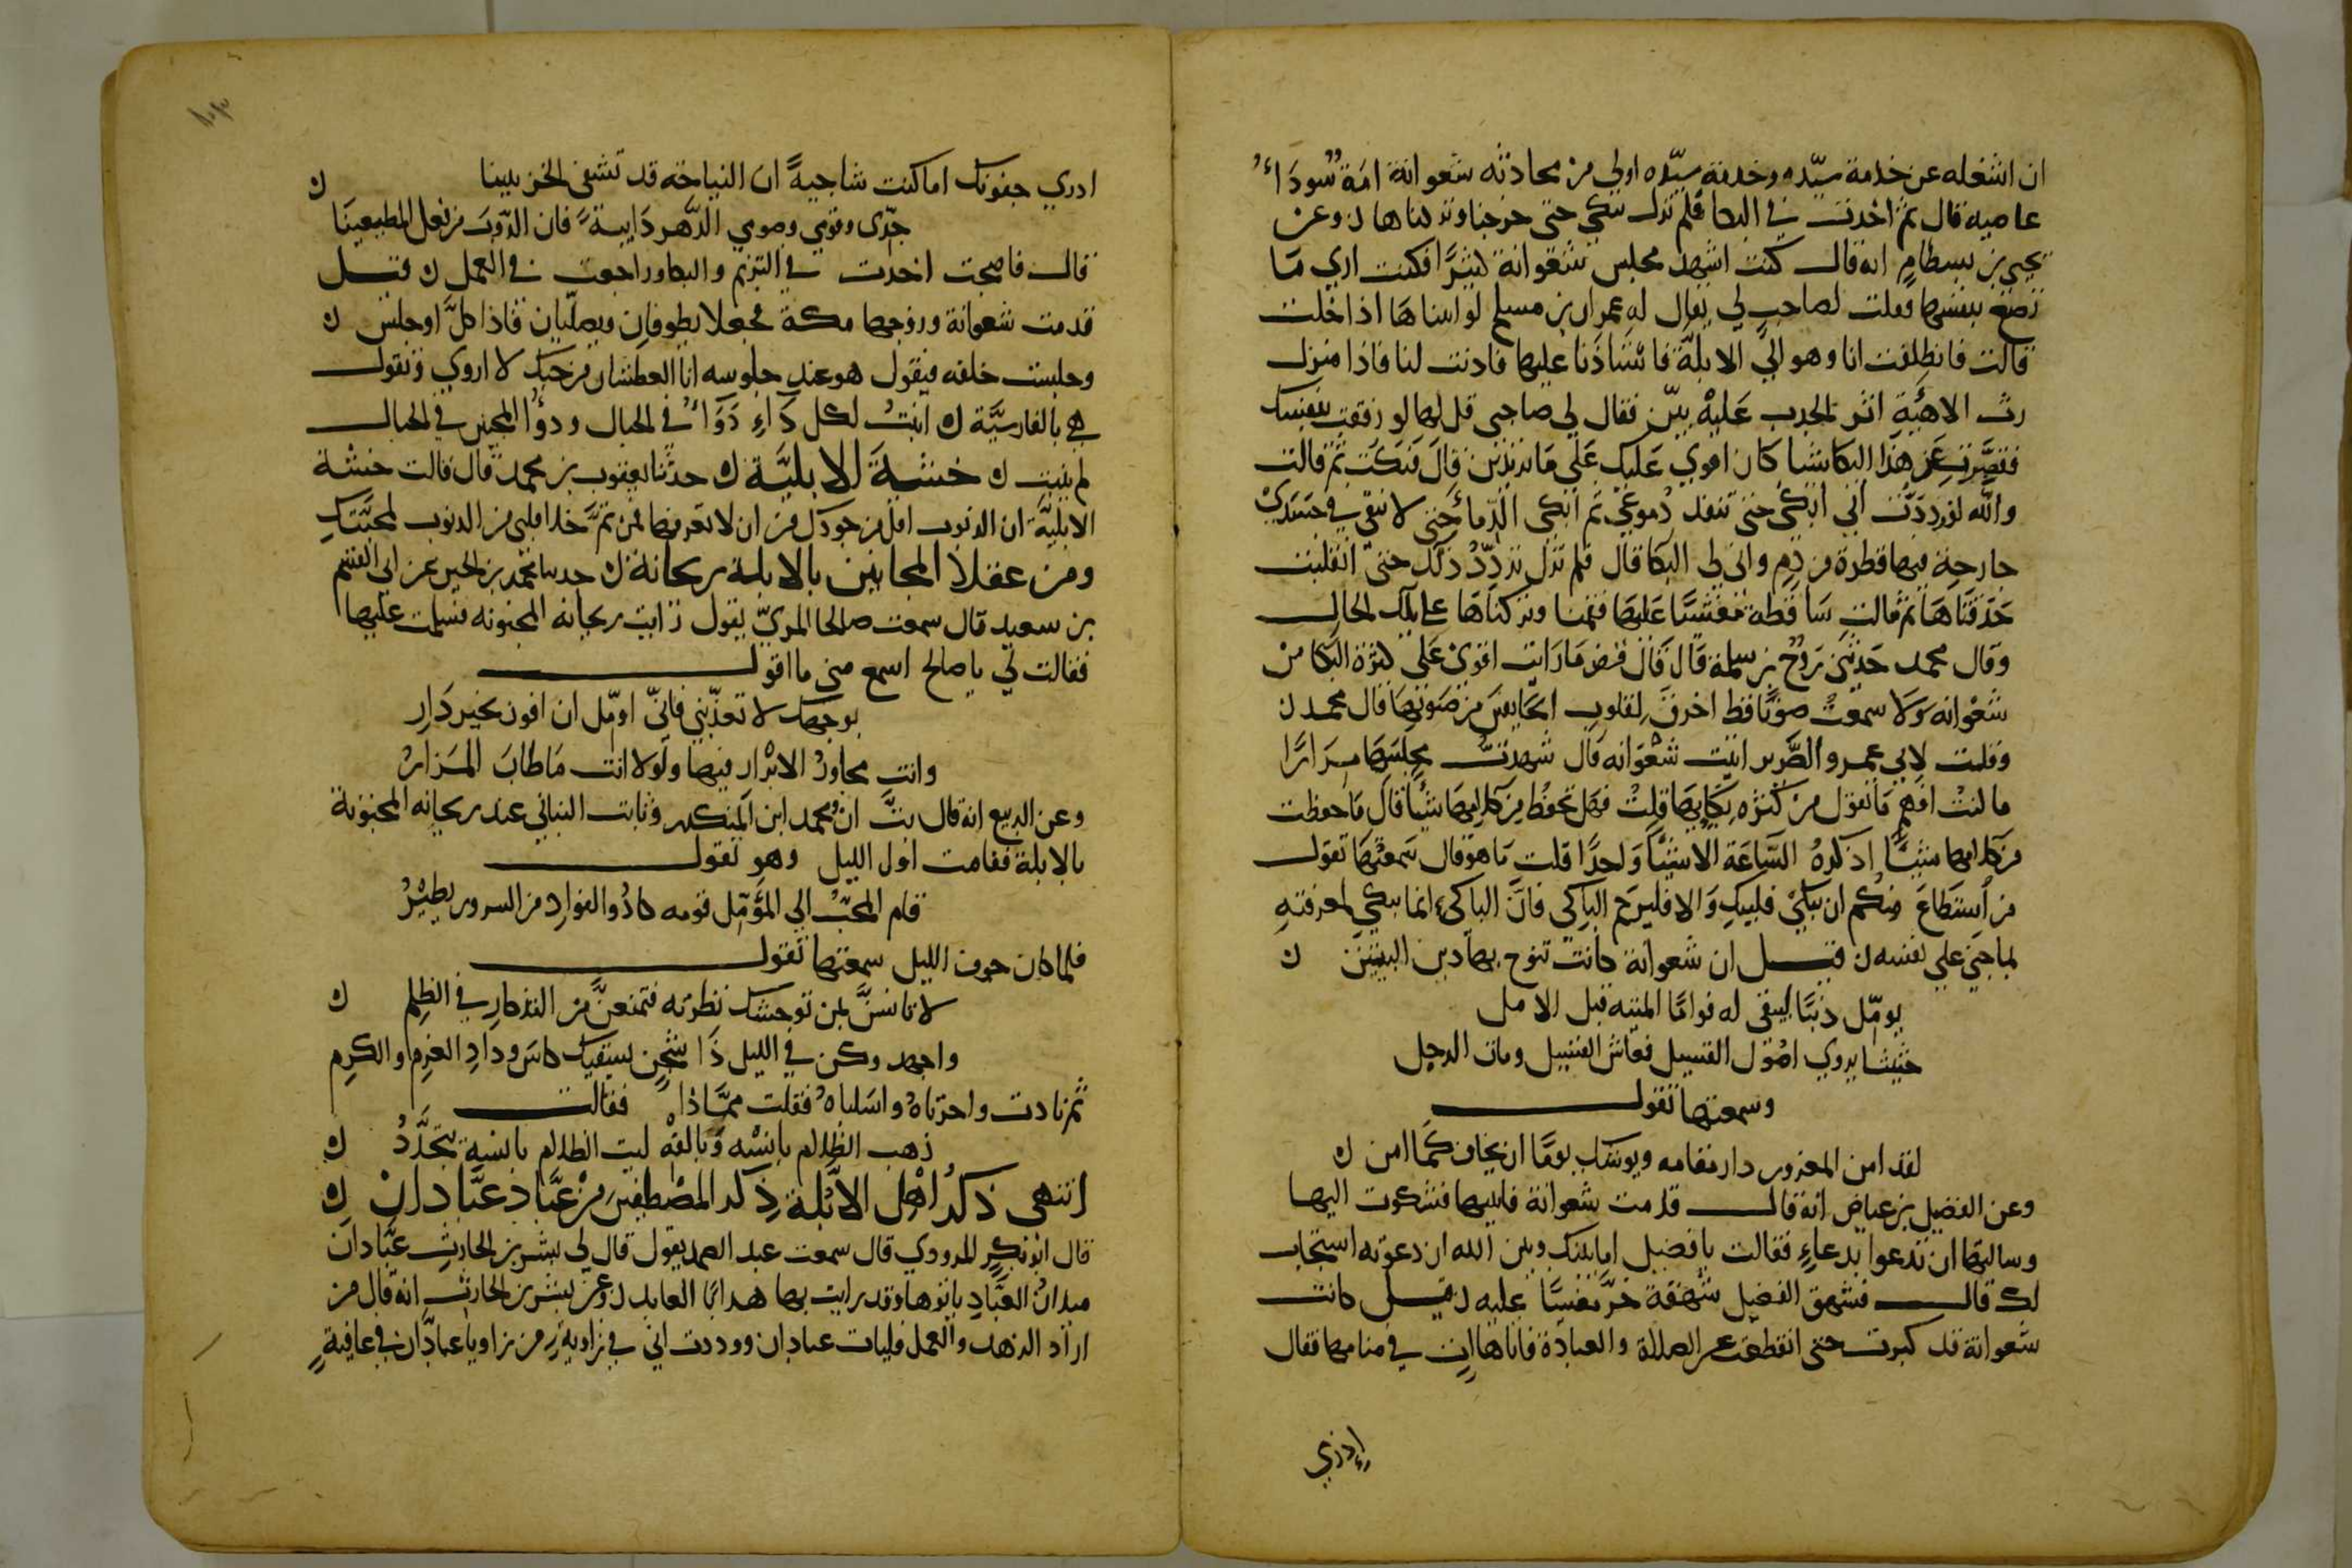 ان اشغله عن خدمة سيّده وخدمة سيّده اولى من محادثه شعوانة امة سودَاءُ
عاصيه قال ثم اخذت في البكا فلم تزل تبكي حتى خرجنا وتركناها ن وعن
يحيى بن بسطامٍ انه قال كنت اشهد مجلس شعوانة كثيرًا فكنت ارى مَا
تصنع بنفسها فقلت لصاحبٍ لي يقال له عمران بن مسلم لو اتيناها اذا خلت
قالت فانطلقت انا وهو الى الابلّة فاستاذنا عليها فاذنت لنا فاذا منزل
رث الاهيَةِ اثر الجدب عَليهْ بيّن فقال لي صاحبي قل لها لو رفقتِ بنفسك
فقصَّرتِ عَن هَذا البكا شيا كان اقوى عَليك عَلى مَا تريدين قالَ فبَكَت ثم قالت
والله لوددت اني ابكي حتى تنفد دُموعي ثم ابكي الدّما حَتى لا تبقى في جَسَدي
جارحة فيها قطرة من دم وانى لي البكا قال فلم تزل تردِّدُ ذلك حتى انقلبت
حَدَقتَاهَا ثم مالت سَاقطه مغشيًا عَليهَا فقمنا وتركناهَا على تلك الحال
وقال محمد حَدثني رَوْح بن سلمة قالَ قالَ مضر مَا رَايت اقوى عَلى كثرة البُكا من
شعْوانه وَلا سمعتُ صوتًا قط احرق لقلوب الخايفين من صَوتِهَا قال محمد ن
وقلت لابي عمر والضَّرير اتيت شعْوَانه قال شهدتُ مجلسَهَا مِرَارًا
ما كنتْ افهم مَا تقول من كثرَه بُكايِهَا قلتْ فهَل تحفظ من كلامِهَا شيئًا قال مَا حفظت
من كلامها شيئًا اذكرهُ السَّاعَة الا شيئًا وَاحِدًا قلت مَا هو قال سَمعتُهَا تقول
من اُستطَاعَ منكم ان يبكي فليبكِ وَالا فليرحَم الباكي فانّ الباكي انما يبكي لمعرفته
بما جنى على نفسه ن قيل ان شعوانة كانت تنوح بهادين البيتين ن
يومّل دنيًا لتبقى له فوافا المنيه قبل الامل
حثيثا يروي اصُول الفسيل فعَاش الفسيل ومات الرجل
وسمعتها تقول
لقد امن المغرور دار مقامه ويوشك يومًا ان يخاف كمَا امن ن
وعن الفضيل بن عياض انه قال قدمت شعوانة فاتيتها فشكوت اليها
وسالتها ان تدعوا بدعاءٍ فقالت يا فضيل اما بينك وبين الله ان دعوته استجاب
لك قال فشهق الفضيل شهقة خرَّ مغشيًا عليه ن قيل كانت
شعوانة قد كبرت حتى انقطعت عن الصلاة والعبادة فاتاها اتٍ في منامها فقال
إِذري
ادري جفونك اما كنت شاجيةً ان النياحة قد تشفى الحزيينا ن
جدّى وقومي وصومي الدَّهر دَايبةً فان الدّوبَ من فعل المطيعينَا
قال فاصبحت اخذت في الترنم والبكا وراجعت في العمل ن قيل
قدمت شعوانة وزوجها مكة فجعلا يطوفانِ ويصلّيانِ فاذا كلَّ او جلس ن
وجلست خلفه فيقول هو عند جلوسه انا العطشان من حبك لا اروي وتقول
هي بالفارسيَّة ن انبتُ لكل دَاءٍ دَوَاءٌ في الجبال ودوَا المحبين في الجبال
لم ينبت ن خنسَة الابليَّة ن حدثنا يعقوب بن محمد قال قالت خنسة
الابليَّة ان الذنوب اقل من جودك من ان لا تغفرها لمن ثمَّ خلا قلبي من الذنوب لمحبَّتك
ومن عقلا المجانين بالابلة ريحانة ن حدثنا محمد بن الحسين عن ابي القسم
بن سعيد قال سمعت صالحا المريّ يقول رايت ريحانه المجنونه فسلمت عليها
فقالت لي يا صالح اسمع مني ما اقول
بوجهك لا تعذّبني فانّي اومّل ان افوز بخير دَارِ
وانت مجاورُ الابْرارِ فيها ولولا انت مَا طابَ المَزارُ
وعن الربيع انه قال بتُّ انا ومحمد ابن المنكدر وثابت البناني عند ريحانه المجنونة
بالابلة فقامت اول الليل وهو تقول
قام المحبُّ الى المؤَمّل قومه كادُ والفوادِ من السرور يطيْرُ
فلما كان جوف الليل سمعتها تقول
لا تانسنَّ بمن توحشك نظرته فتمنعنَّ من التذكارِ في الظلم ن
واجهد وكن في الليل ذَا شجنٍ يسقيك كاس ودادِ العزِم والكرِم
ثم نادت واحزناهُ واسَلباهُ فقلت ممَّاذاهْ فقالت
ذهب الظلام بانسْه وَبالفهْ ليت الظلام بانسِهِ يتجدَّدُ ن
انتهى ذكر اهْل الاُبُلَّة ذِكر المصْطفين مِنْ عبَّاد عبَّادان ن
قال ابو بكرٍ المرودي قال سمعت عبد الصمد يقول قال لي بشر بن الحارثِ عبَّادان
ميدانُ العبَّادِ ياتوها وقد رايت بها هدابًا العابد ن وعن بشر بن الحارثِ انه قال من
اراد الزهد والعمل فليات عبادان ووددت اني في زاويةٍ من زوايا عبادَّان في عافيةٍ